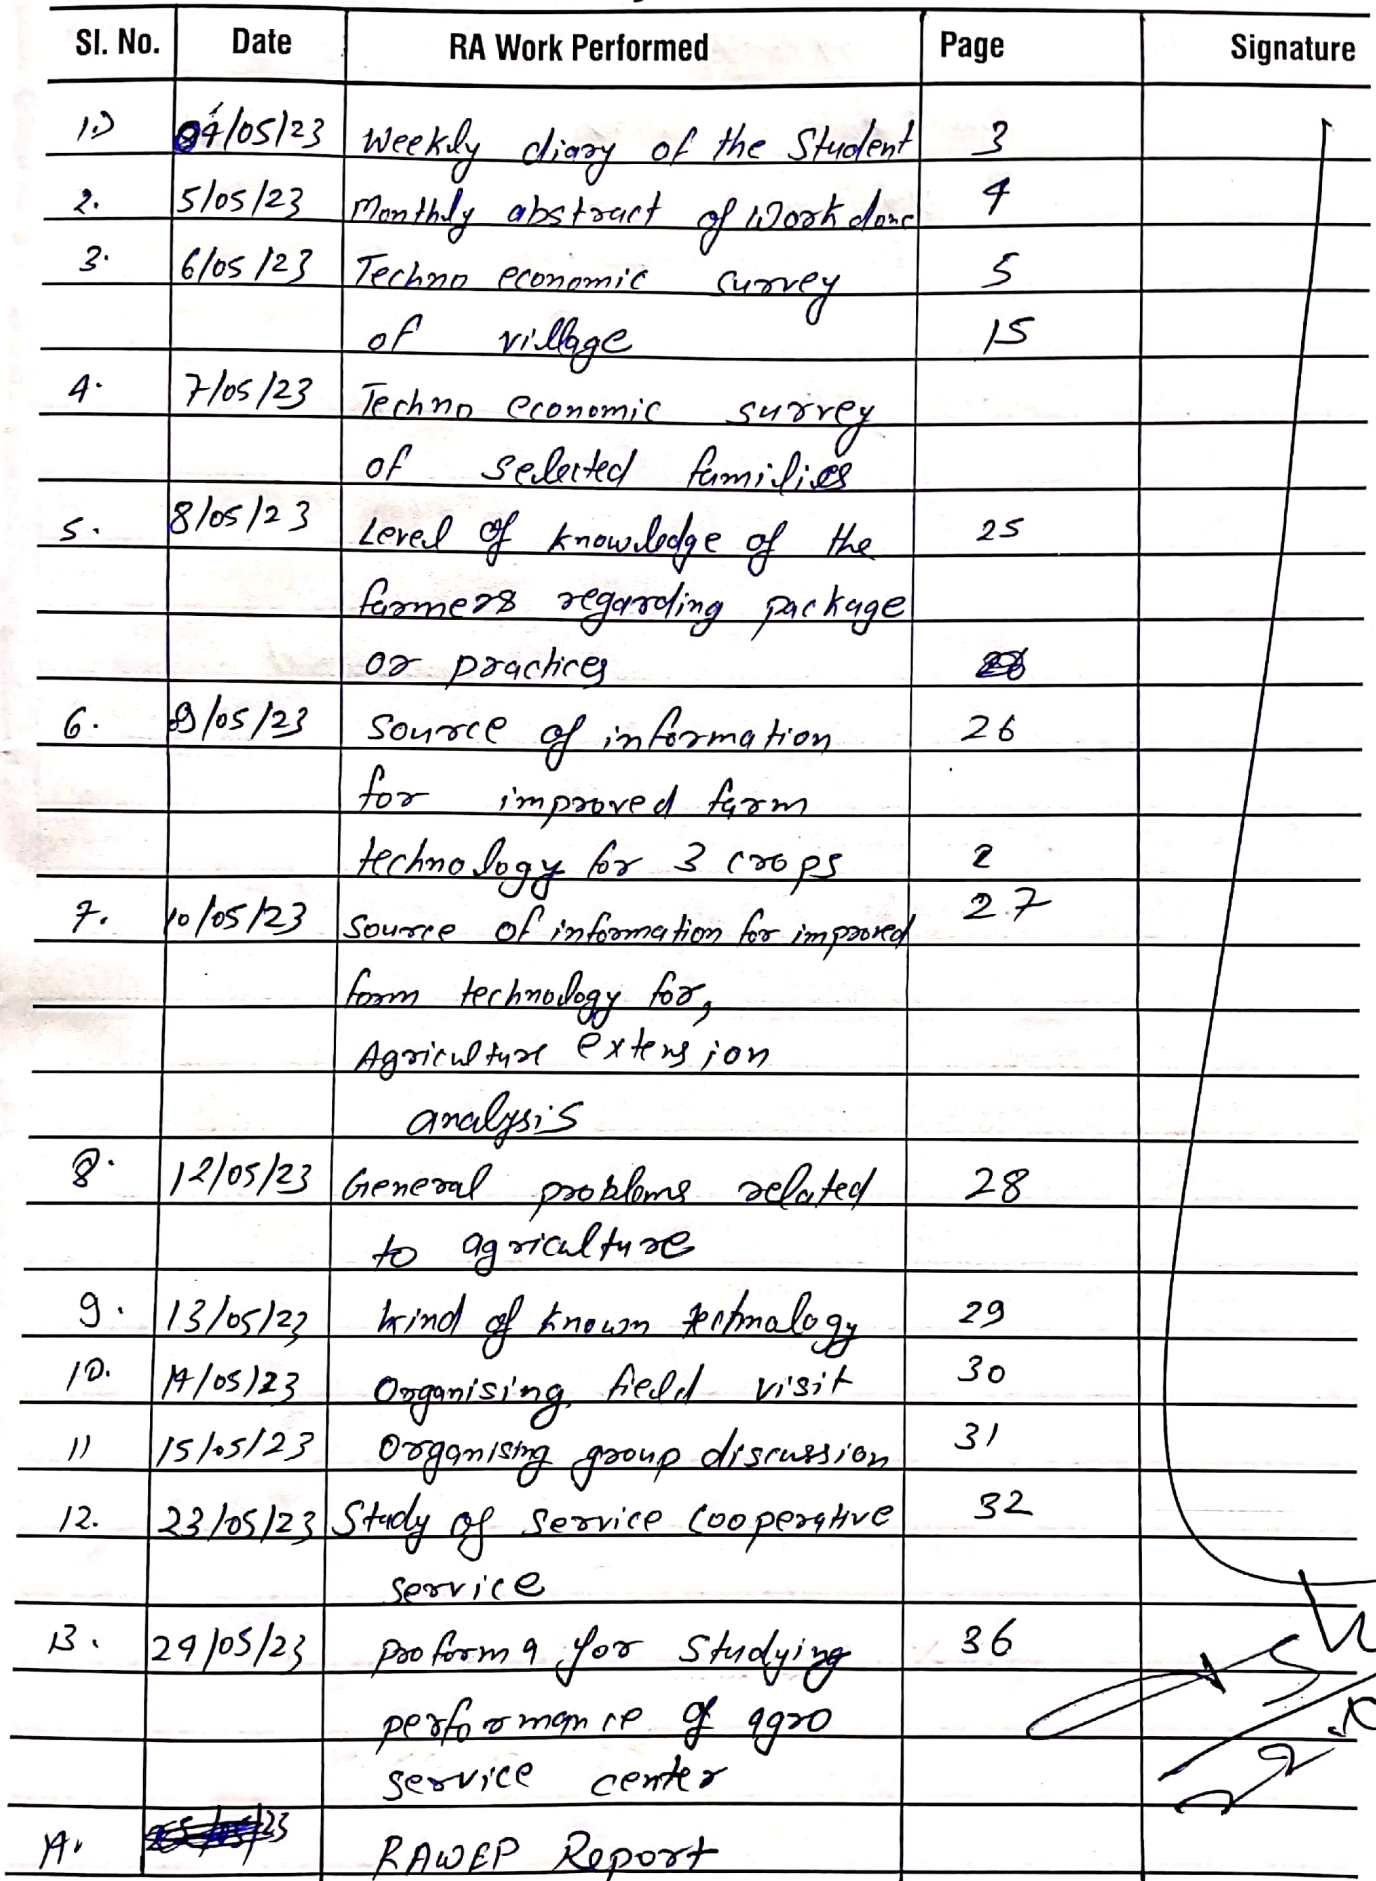 Sl. No. Date RA Work Performed Page Signature
1.) 04/05/23 Weekly diary of the Student 3
2. 5/05/23 Monthly abstract of Work done 4
3. 6/05/23 Techno economic survey 5
of village 15
4. 7/05/23 Techno economic survey
of selected families
5. 8/05/23 Level of knowledge of the 25
farmers regarding package
or practices
6. 9/05/23 Source of information 26
for improved farm
technology for 3 crops 2
7. 10/05/23 Source of information for improved 27
form technology for,
Agriculture extension
analysis
8. 12/05/23 General problems related 28
to agriculture
9. 13/05/23 kind of known technology 29
10. 14/05/23 Organising field visit 30
11 15/05/23 Organising group discussion 31
12. 23/05/23 Study of Service Cooperative 32
Service
13. 24/05/23 Proforma for Studying 36
performance of agro
service center
14. RAWEP Report